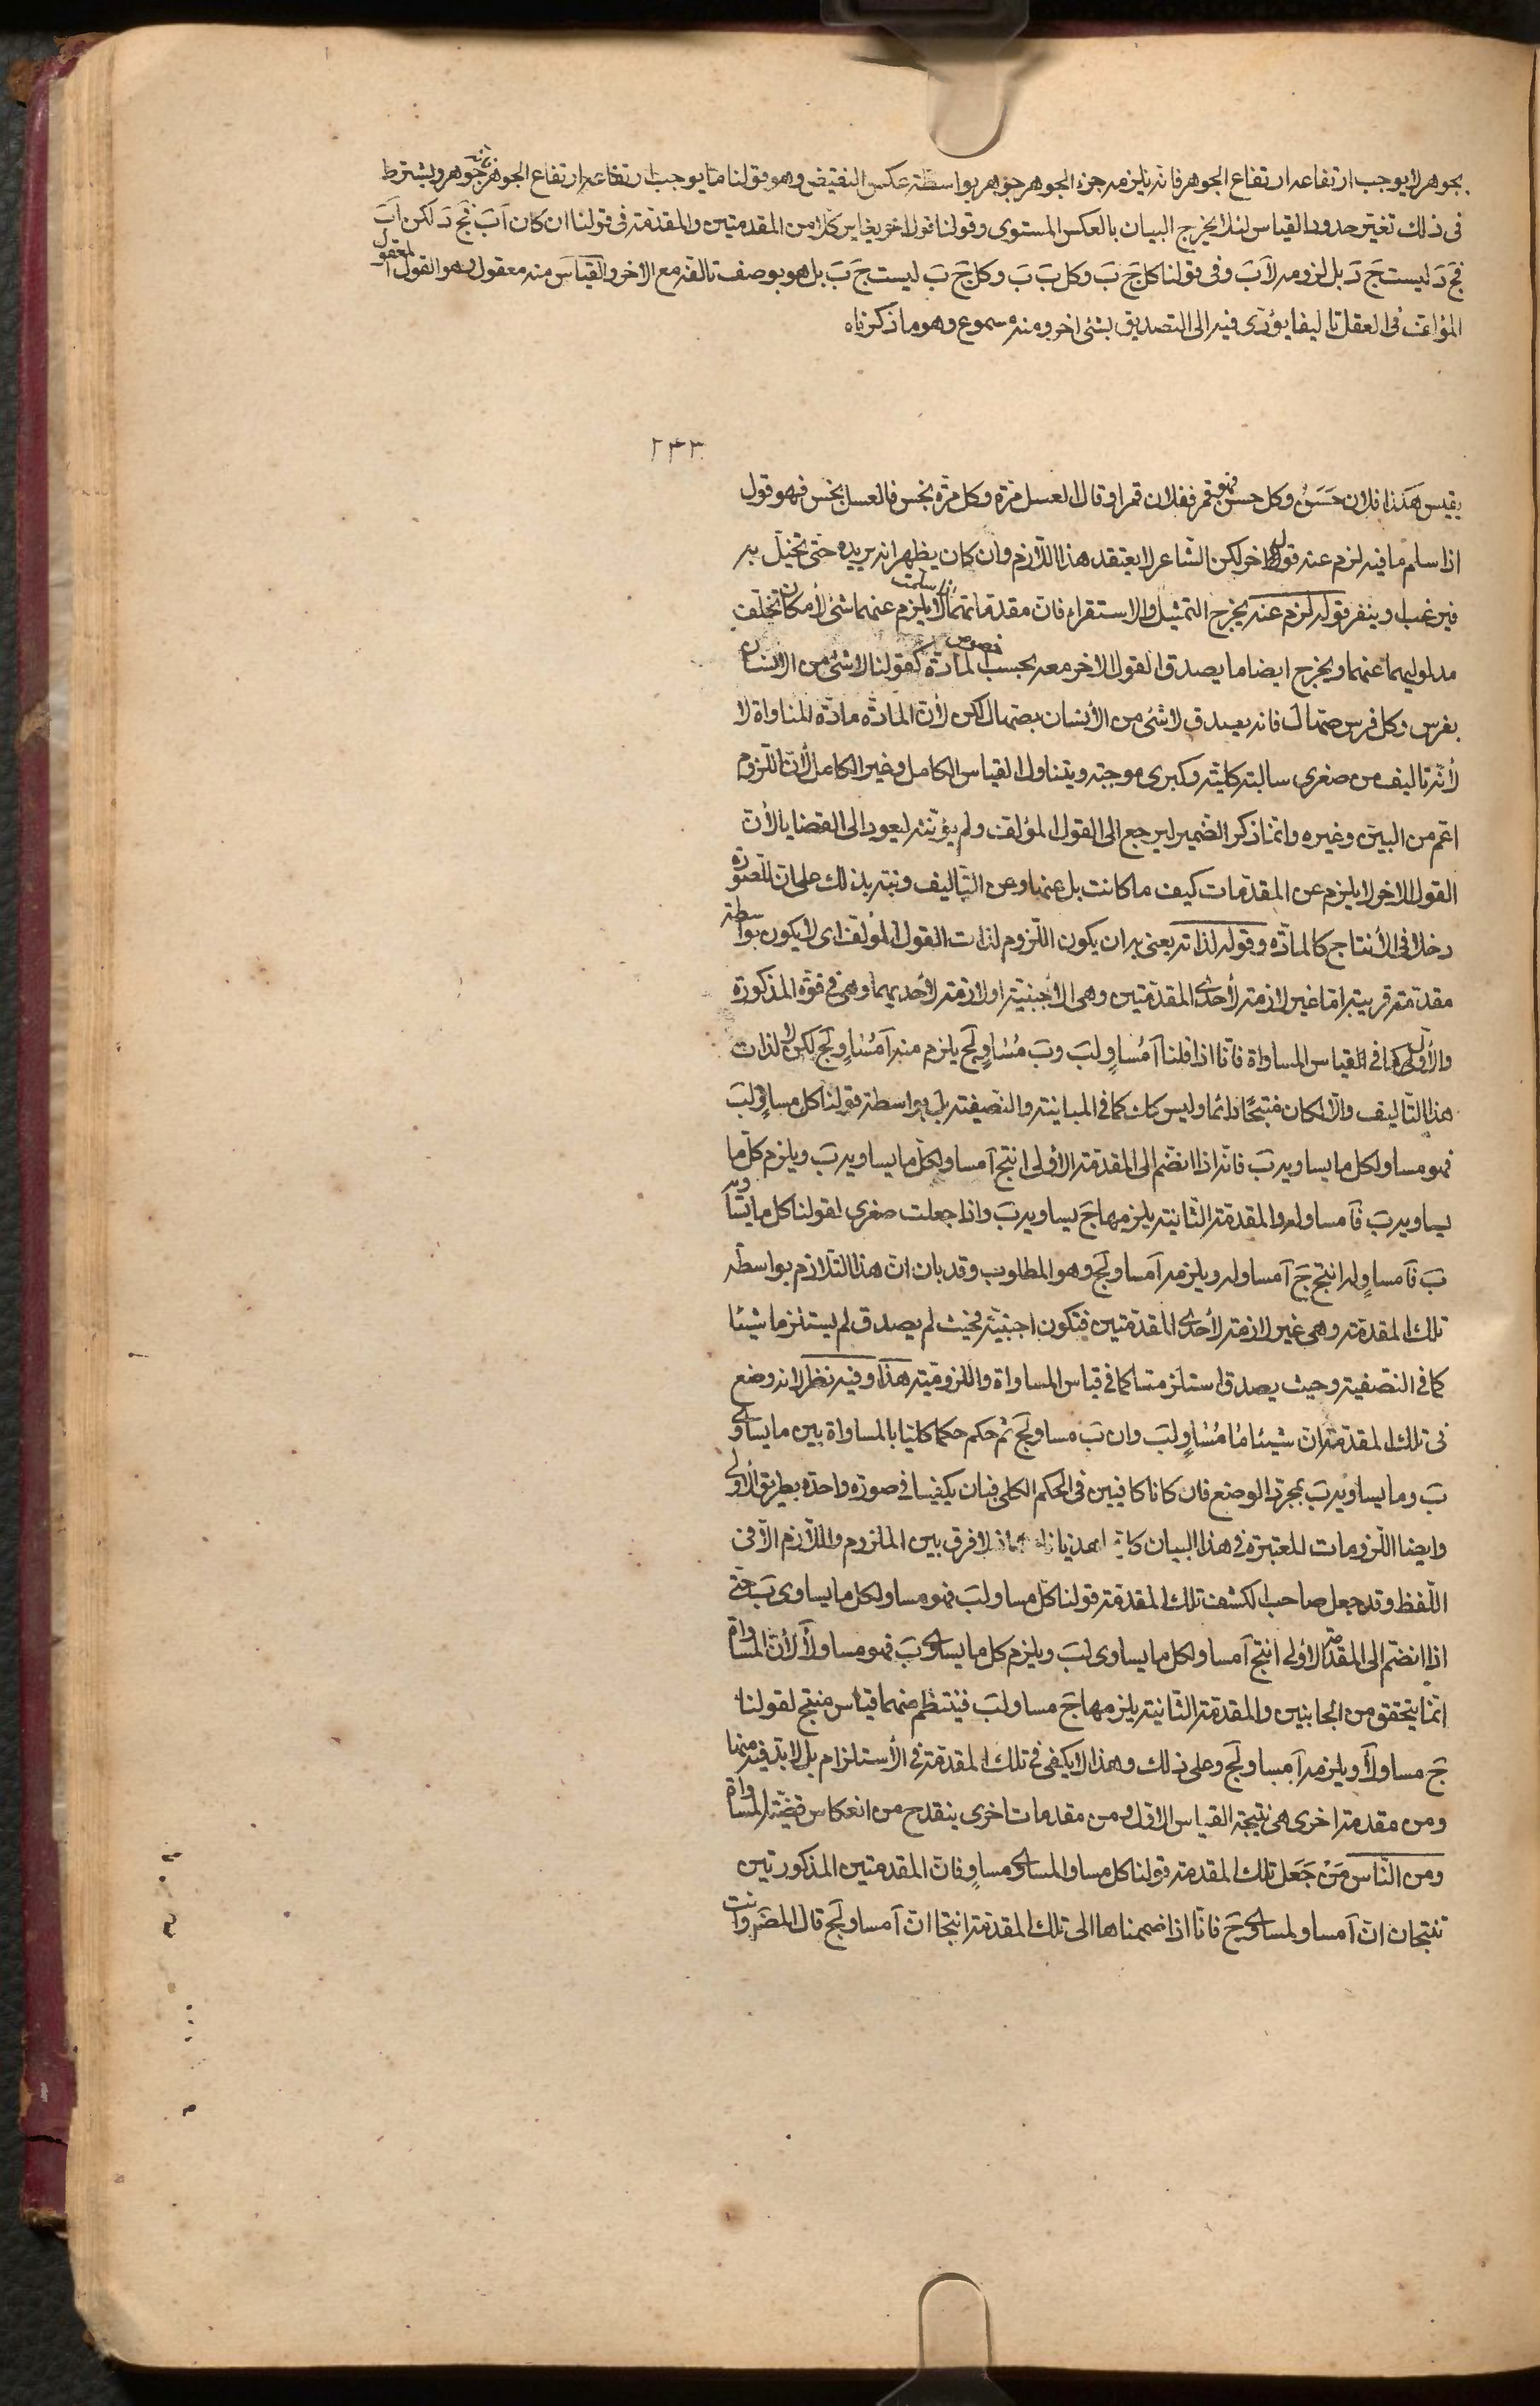 بجوهر لا يوجب ارتفاعه ارتفاع الجوهر فانه يلزمه جزء الجوهر جوهر بواسطة عكس النقيض وهو قولنا ما يوجب ارتفاعه ارتفاع الجوهر فانه جوهر ويشترط
فى ذلك تغيّر حدود القياس لئلا يخرج البيان بالعكس المستوى وقولنا قولا اخر يغاير كلا من المقدمتين والمقدمة فى قولنا ان كان اَبَ فجَ دَ لكن اَبَ
فجَ دَ ليست جَ دَ بل لزومه لاَبَ وفى قولنا كل جَ بَ وكل بَ بَ وكل جَ بَ ليست جَ بَ بل هو بوصف تالفه مع الاخر والقياس منه معقول وهو القول المعقول
المؤلف فى العقل تاليفا يؤدى فيه الى التصديق بشئ اخر ومنه مسموع وهو ما ذكرناه
٢٤٣
يقيس هكذا فلان حَسَنٌ وكل حسن فهو قمر ففلان قمر او قال العسل مرّة وكل مرّة نجس فالعسل نجس فهو قول
اذا سلم ما فيه لزم عنه قول اخر لكن الشاعر لا يعتقد هذا اللازم وان كان يظهر انه يريده حتى تخيّل به
فيرغب او ينفر قوله لزم عنه يخرج التمثيل والاستقراء فان مقدماتهما اذا سلمت لا يلزم عنهما شئ لأمكان تخلّف
مدلوليهما عنهما ويخرج ايضا ما يصدق القول الاخر معه بحسب خصوص المادّة كقولنا لا شئ من الانسان
بفرس وكل فرس صهّال فانه يصدق لا شئ من الأنسان بصهال لكن لأن المادّة مادّة المناواة لا
لأنّه تاليف من صغرى سالبة كليّة وكبرى موجبة ويتناول القياس الكامل وغير الكامل لأن اللزوم
اعم من البيّن وغيره وانما ذكر الضمير ليرجع الى القول المؤلف ولم يؤنّثه ليعود الى القضايا لأن
القول الاخر لا يلزم عن المقدّمات كيف ما كانت بل عنها وعن التأليف ونبّه بذلك على ان للصورة
دخلا فى الأنتاج كالمادّه وقوله لذاته يعنى به ان يكون اللزوم لذات القول المؤلف اى لا يكون بواسطة
مقدمة غريبة امّا غير لازمة لأحدى المقدّمتين وهى الأجنبيّة او لازمة لأحديهما وهى فى قوّة المذكورة
والأول كما فى القياس المساواة فانّا اذا قلنا اَ مُساوٍ لبَ وبَ مُساوٍ لجَ يلزم منه اَ مُساوٍ لجَ لكن لا لذات
هذا التاليف والّا لكان منتجًا دائما وليس كك كما فى المباينة والنصفية بل بواسطة قولنا كل مساوٍ لبَ
فهو مساو لكل ما يساويه بَ فانه اذا انضم الى المقدمة الأولى انتج اَ مساو لكل ما يساويه بَ ويلزم كل ما
يساويه بَ فاَ مساو له والمقدمة الثانية يلزمها جَ يساويه بَ واذا جعلت صغرى لقولنا كل ما يساويه
بَ فاَ مساوٍ له انتج جَ اَ مساو له ويلزمه اَ مساو لجَ وهو المطلوب وقد بان ان هذا التلازم بواسطة
تلك المقدمة وهى غير لازمة لأحدى المقدمتين فتكون اجنبيّة فحيث لم يصدق لم يستلزما شيئا
كما فى النصفية وحيث يصدق استلزمتا كما فى قياس المساواة واللزوميّة هذا وفيه نظر لانه وضع
فى تلك المقدمة ان شيئا ما مُساوٍ لبَ وان بَ مساو لجَ ثم حكم حكما كليّا بالمساواة بين ما يساوى
بَ وما يساويه بَ بمجرّد الوضع فان كانا كافيين فى الحكم الكلى فبان يكفيا فى صورة واحدة بطريق الأولى
وايضا اللزومات المعتبرة فى هذا البيان لا فرق بين الملزوم واللّازم الّا فى
اللّفظ وقد جعل صاحب الكشف تلك المقدمة قولنا كل مساو لبَ فهو مساو لكل ما يساوى بَ حتى
اذا انضم الى المقدمة الأولى انتج اَ مساو لكل ما يساوى لبَ ويلزم كل ما يساوى بَ فهو مساو لاَ لأن المساواة
انما يتحقق من الجانبين والمقدمة الثانية يلزمها جَ مساو لبَ فينتظم منهما قياس منتج لقولنا
جَ مساو لاَ ويلزمه اَ مساو لجَ وعلى ذلك وهذا لا يكفى فى تلك المقدمة فى الأستلزام بل لا بد فيه منها
ومن مقدمة اخرى هى نتيجة القياس الاول ومن مقدمات اخرى ينقدح من انعكاس قضيّة المساواة
ومن النّاس مَنْ جَعَل تلك المقدمة قولنا كل مساو المساوى مساوٍ فان المقدمتين المذكورتين
تنتجان ان اَ مساو لمساوى جَ فانّا اذا ضممناها الى تلك المقدمة انتجا ان اَ مساو لجَ قال المصَ وانت